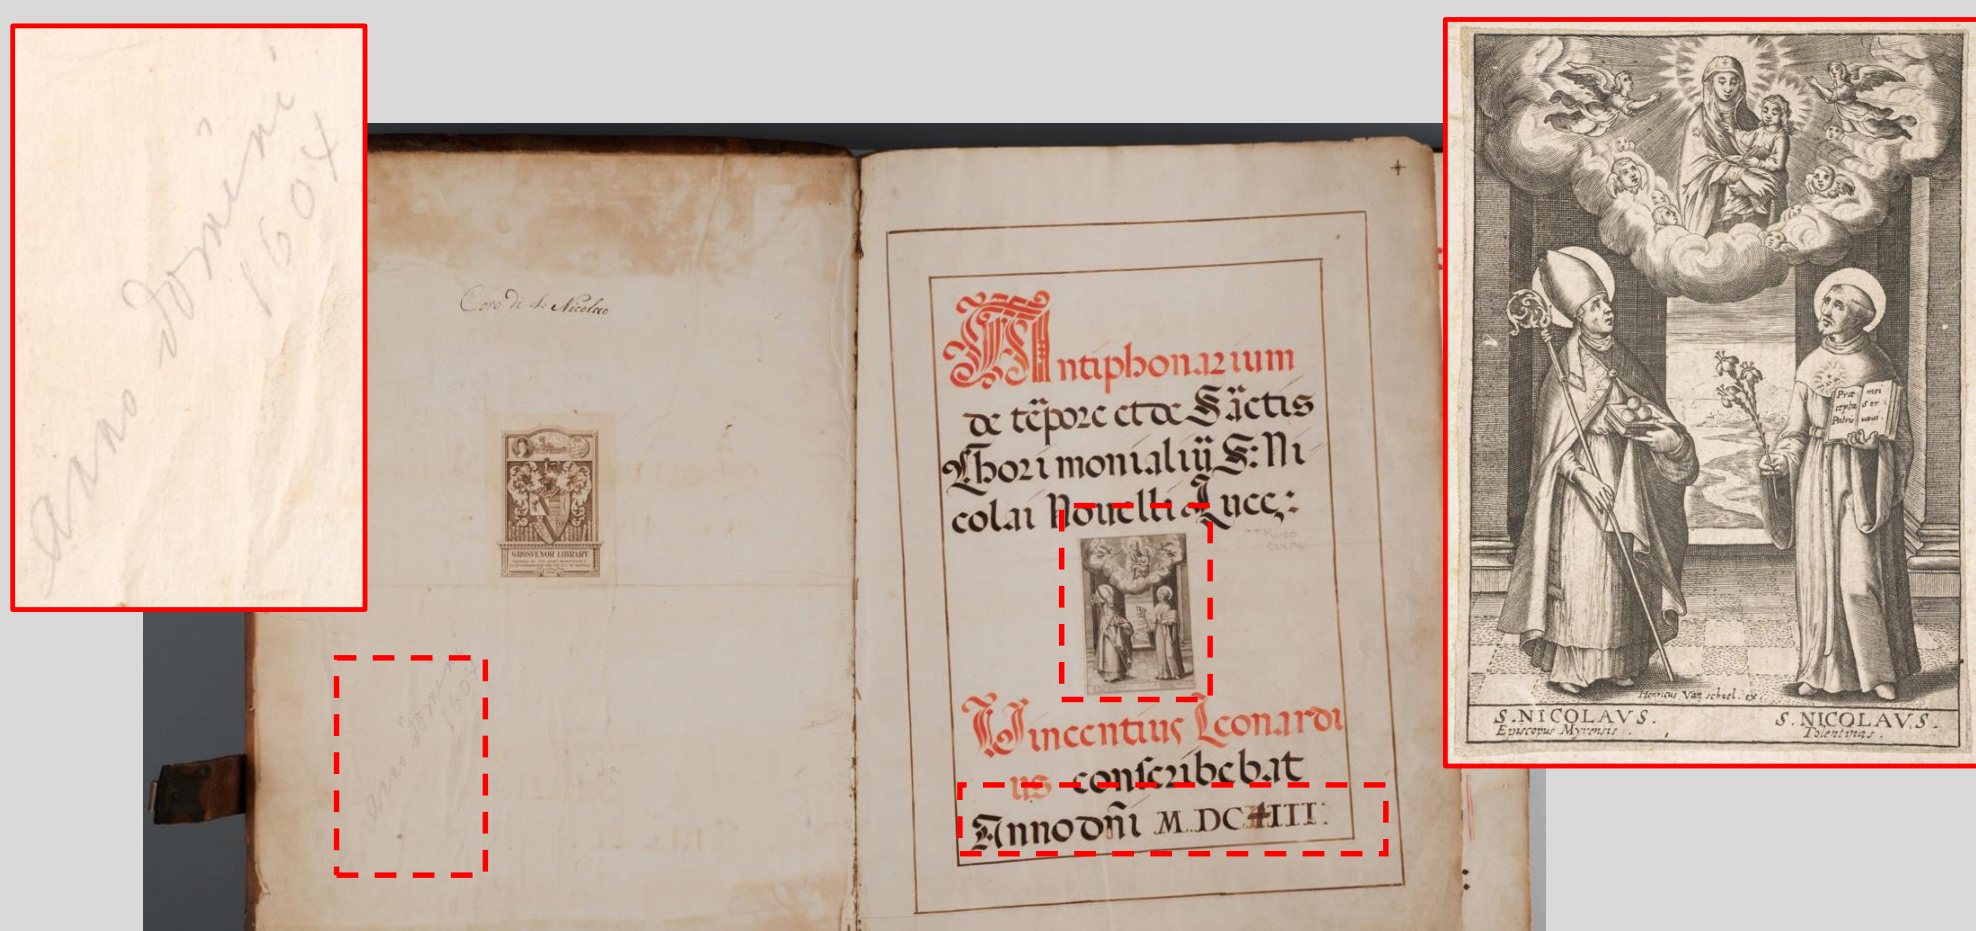 anno domini
1604
Coro di S. Nicolao
GROSVENOR LIBRARY
Antiphonarium
de tēpore et de Sāctis
Chori monialiū S: Ni
colai Nouelli Luce:
Vincentius Leonardi
us conscribebat
Anno dñi M.DC IIII.
anno domini
1604
Præ mei
cepta ser
Patris uaui.
Henricus Van schoel. ex.
S. NICOLAVS.
Episcopus Myrensis.
S. NICOLAVS.
Tolentinas.